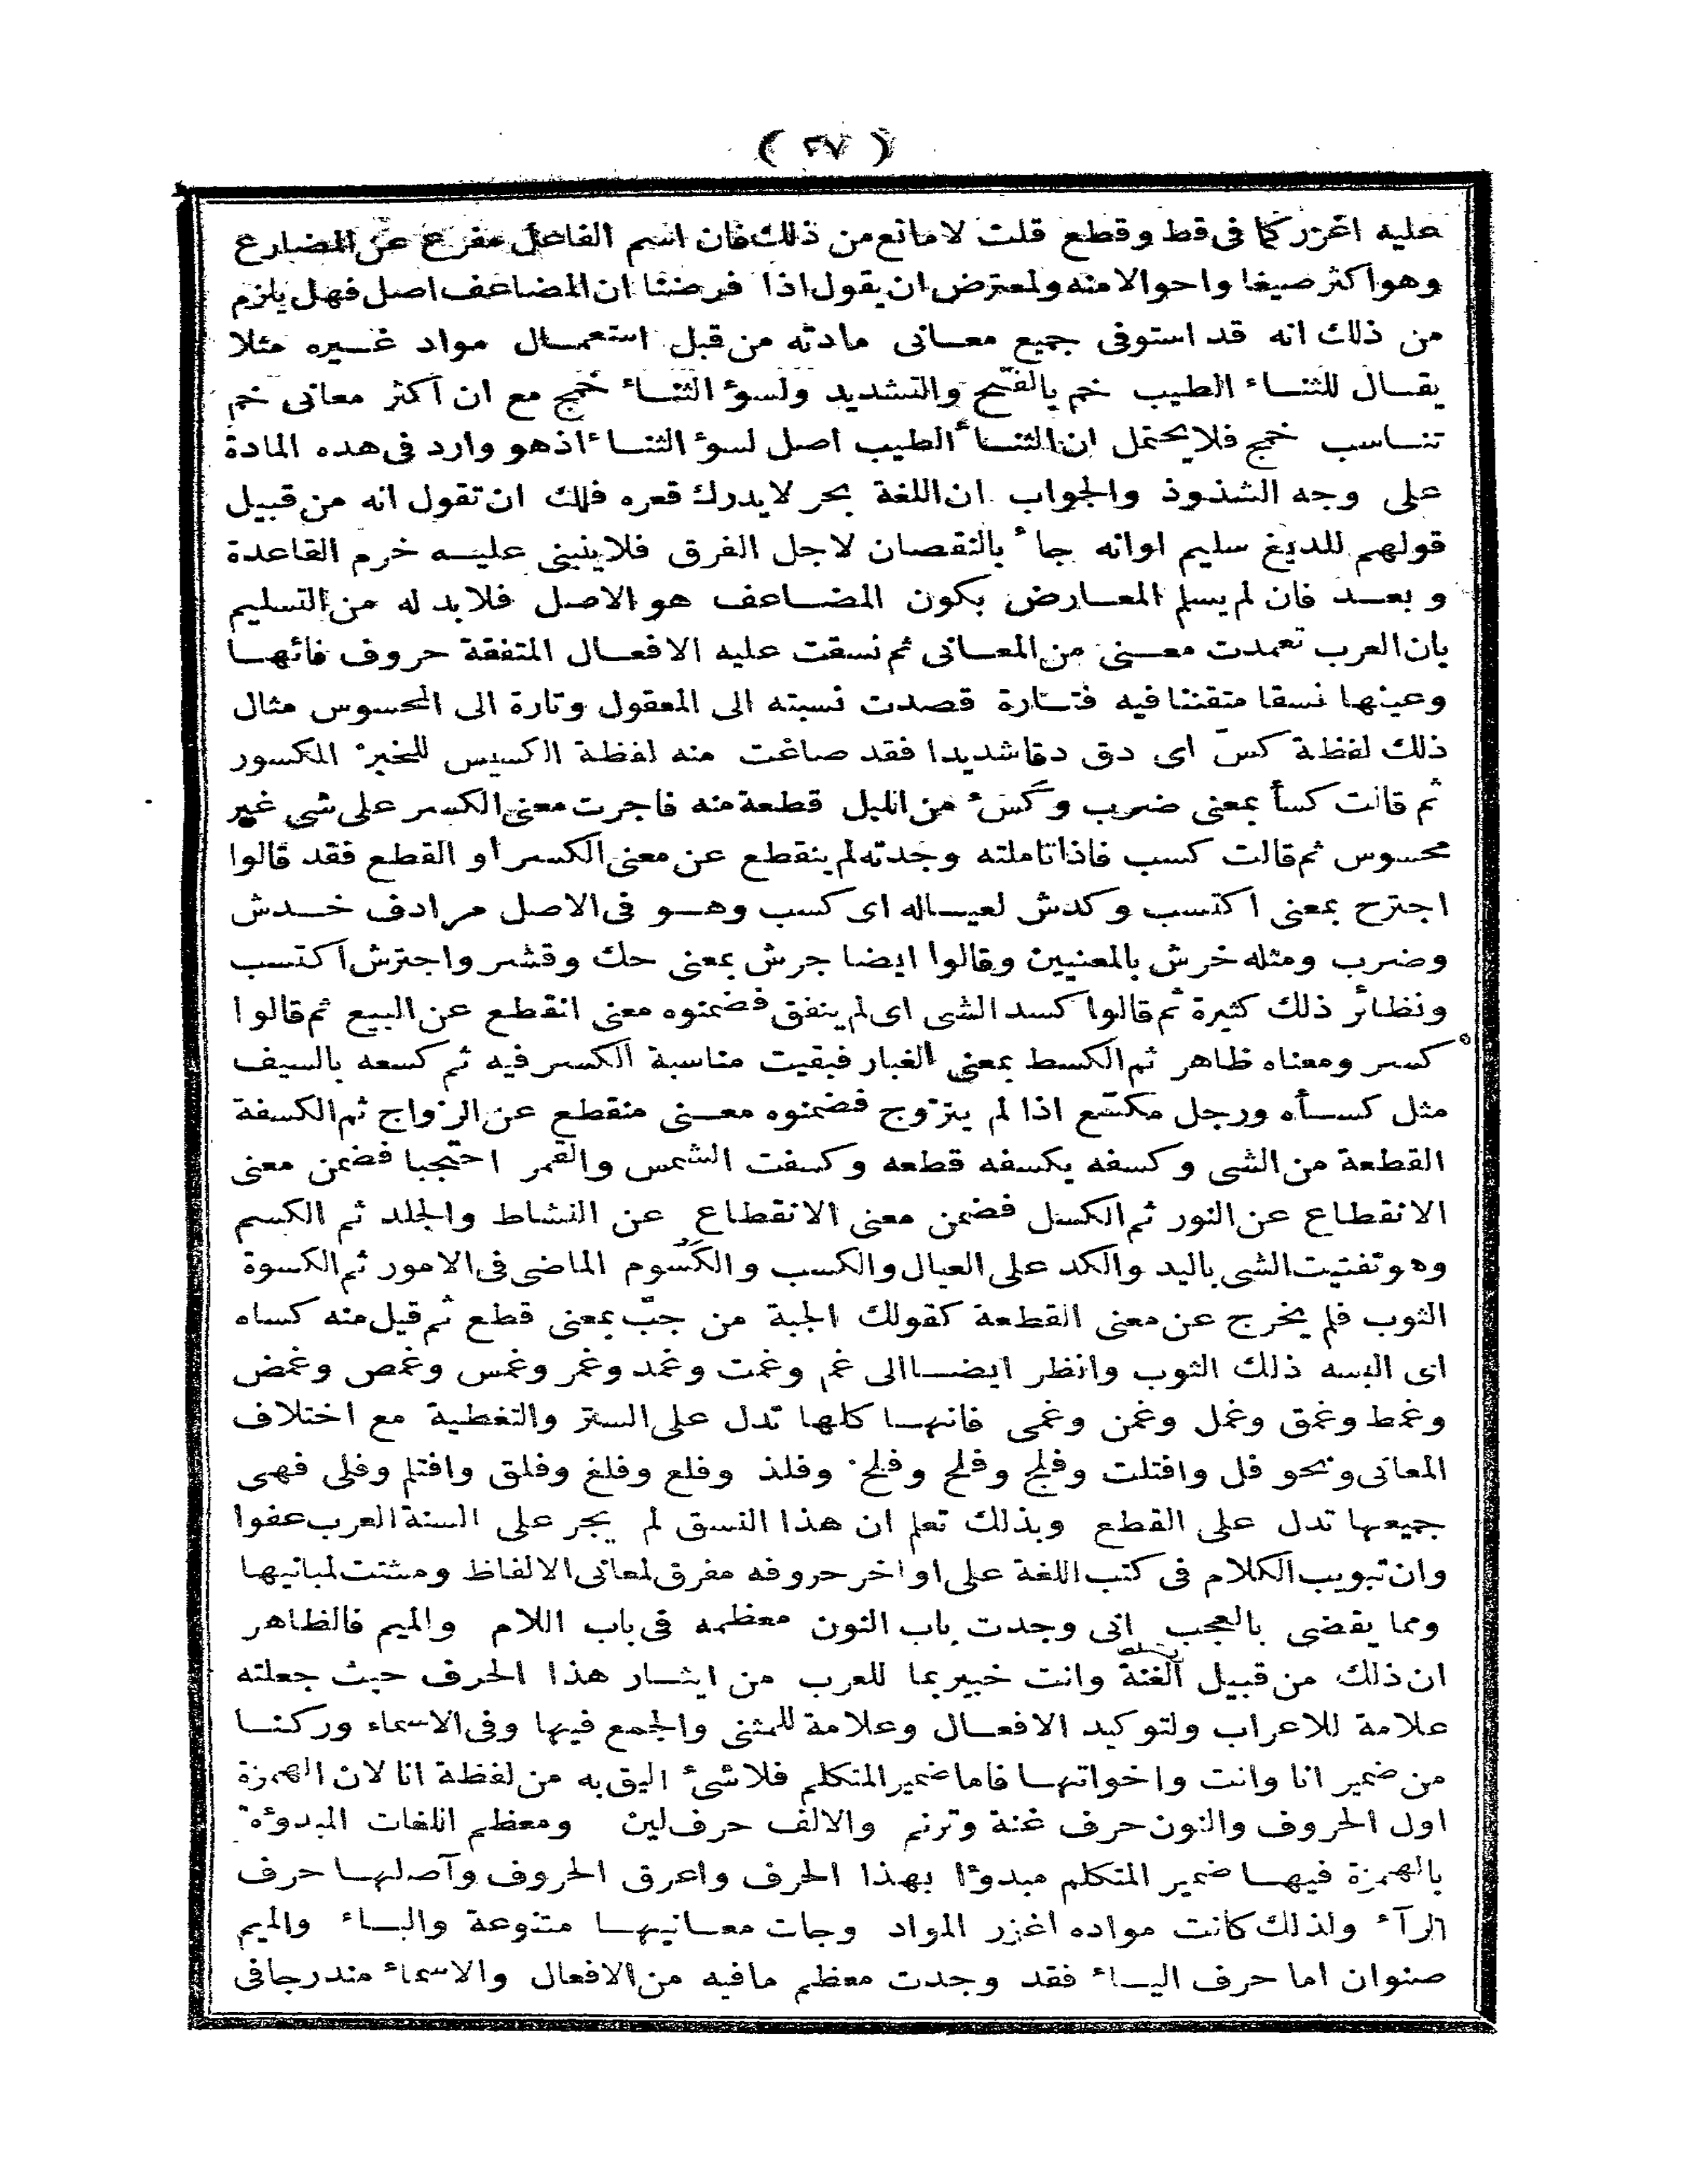 ( ٢٧ )
عليه اغزر كما فى قط وقطع قلت لا مانع من ذلك فان اسم الفاعل مفرع عن المضارع
وهو اكثر صيغا واحوالا منه ولمعترض ان يقول اذا فرضنا ان المضاعف اصل فهل يلزم
من ذلك انه قد استوفى جميع معانى مادته من قبل استعمال مواد غيره مثلا
يقال للثناء الطيب خم بالفتح والتشديد ولسوء الثناء خمج مع ان اكثر معانى خم
تناسب خمج فلا يحتمل ان الثناء الطيب اصل لسوء الثناء اذ هو وارد فى هذه المادة
على وجه الشذوذ والجواب ان اللغة بحر لا يدرك قعره فلك ان تقول انه من قبيل
قولهم للديغ سليم او انه جاء بالنقصان لاجل الفرق فلا ينبنى عليه خرم القاعدة
وبعد فان لم يسلم المعارض بكون المضاعف هو الاصل فلا بد له من التسليم
بان العرب تعمدت معنى من المعانى ثم نسقت عليه الافعال المتفقة حروف فائها
وعينها نسقا متقننا فيه فتارة قصدت نسبته الى المعقول وتارة الى المحسوس مثال
ذلك لفظة كسّ اى دق دقا شديدا فقد صاغت منه لفظة الكسيس للخبز المكسور
ثم قالت كسأ بمعنى ضرب وكَسْء من الليل قطعة منه فاجرت معنى الكسر على شى غير
محسوس ثم قالت كسب فاذا تاملته وجدته لم ينقطع عن معنى الكسر او القطع فقد قالوا
اجترح بمعنى اكتسب وكدش لعياله اى كسب وهو فى الاصل مرادف خدش
وضرب ومثله خرش بالمعنيين وقالوا ايضا جرش بمعنى حك وقشر واجترش اكتسب
ونظائر ذلك كثيرة ثم قالوا كسد الشى اى لم ينفق فضمنوه معنى انقطع عن البيع ثم قالوا
كسر ومعناه ظاهر ثم الكسط بمعنى الغبار فبقيت مناسبة الكسر فيه ثم كسعه بالسيف
مثل كسأه ورجل مكسّع اذا لم يتزوج فضمنوه معنى منقطع عن الزواج ثم الكسفة
القطعة من الشى وكسفه يكسفه قطعه وكسفت الشمس والقمر احتجبا فضمن معنى
الانقطاع عن النور ثم الكسل فضمن معنى الانقطاع عن النشاط والجلد ثم الكسم
وهو تفتيت الشى باليد والكد على العيال والكسب والكَسُوم الماضى فى الامور ثم الكسوة
الثوب فلم يخرج عن معنى القطعة كقولك الجبة من جبّ بمعنى قطع ثم قيل منه كساه
اى البسه ذلك الثوب وانظر ايضا الى غم وغمت وغمد وغمر وغمس وغمص وغمض
وغمط وغمق وغمل وغمن وغمى فانها كلها تدل على الستر والتغطية مع اختلاف
المعانى ونحو فل وافتلت وفلج وفلح وفلخ وفلذ وفلع وفلغ وفلق وافتلم وفلى فهى
جميعها تدل على القطع وبذلك تعلم ان هذا النسق لم يجر على السنة العرب عفوا
وان تبويب الكلام فى كتب اللغة على اواخر حروفه مفرق لمعانى الالفاظ ومشتت لمبانيها
ومما يقضى بالعجب انى وجدت باب النون معظمه فى باب اللام والميم فالظاهر
ان ذلك من قبيل الغنة وانت خبير بما للعرب من ايثار هذا الحرف حيث جعلته
علامة للاعراب ولتوكيد الافعال وعلامة للمثنى والجمع فيها وفى الاسماء وركنا
من ضمير انا وانت واخواتها فاما ضمير المتكلم فلا شىء اليق به من لفظة انا لان الهمزة
اول الحروف والنون حرف غنة وترنم والالف حرف لين ومعظم اللغات المبدوءة
بالهمزة فيها ضمير المتكلم مبدوءا بهذا الحرف واعرق الحروف وآصلها حرف
الرآء ولذلك كانت مواده اغزر المواد وجات معانيها متنوعة والباء والميم
صنوان اما حرف الياء فقد وجدت معظم ما فيه من الافعال والاسماء مندرجا فى